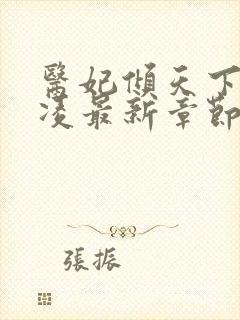 醫妃傾天下
淩最新章節
張振